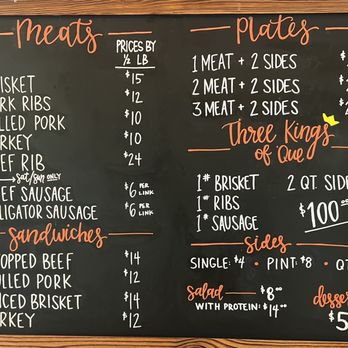 Meats
PRICES BY
½ LB
ISKET $15
RK RIBS $12
LLED PORK $10
RKEY $10
EF RIB $24
→ sat/sun ONLY
EF SAUSAGE $6 PER LINK
LIGATOR SAUSAGE $6 PER LINK
Sandwiches
OPPED BEEF $14
LLED PORK $12
ICED BRISKET $14
RKEY $12
Plates
1 MEAT + 2 SIDES $
2 MEAT + 2 SIDES $
3 MEAT + 2 SIDES $2
Three Kings
of Que
1# BRISKET
1# RIBS
1# SAUSAGE
2 QT. SIDE
$100
sides
SINGLE: $4 • PINT: $8 • QT
salad $8.00
WITH PROTEIN: $14.00
desse
$5